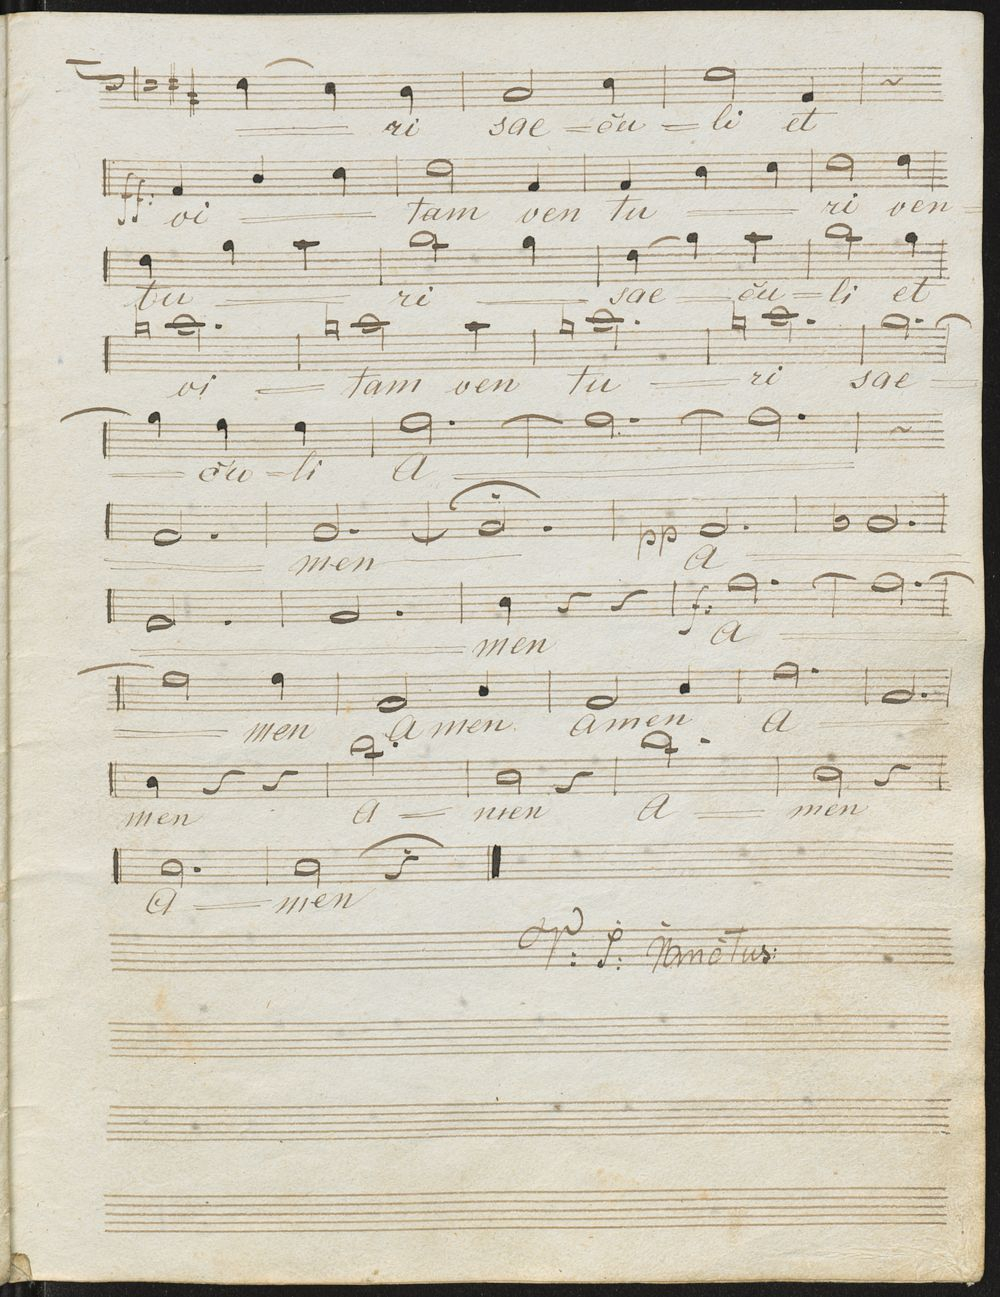 ri sae = cu = li et
ff: vi tam ven tu ri ven =
tu ri sae cu = li et
vi tam ven tu ri sae
cu = li A
men pp A
men f: A
men Amen Amen A
men A = men A men
A men
Sanctus: